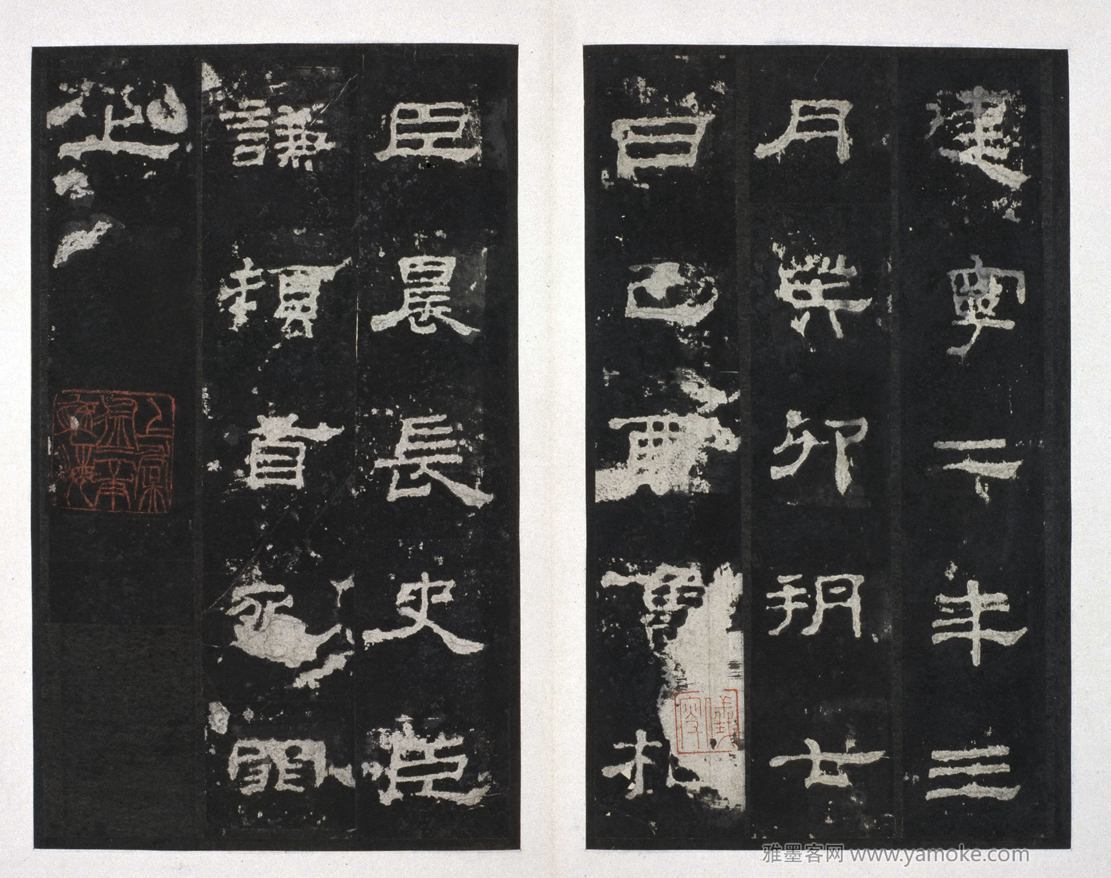 建寧二年三
月癸卯朔七
日己酉魯相
臣晨長史臣
謙頓首死罪
上
雅墨客网 www.yamoke.com